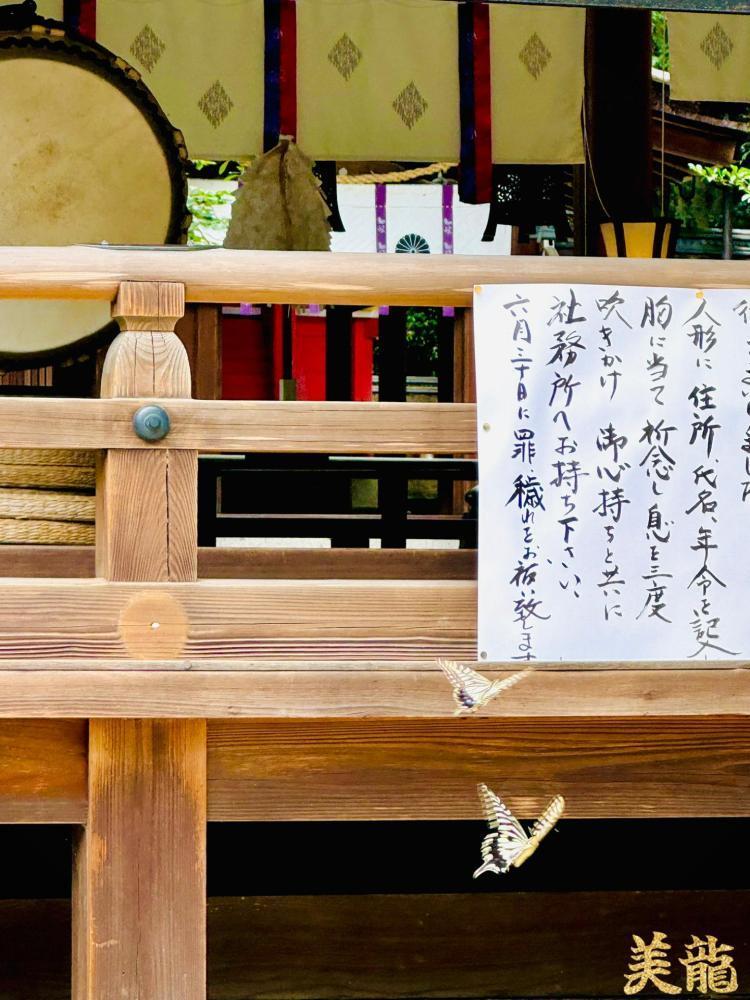 人形に 住所、氏名、年令を記入
胸に当て 祈念し 息を三度
吹きかけ 御心持ちと共に
社務所へお持ち下さい、
六月三十日に罪、穢れをお祓い致します
美龍